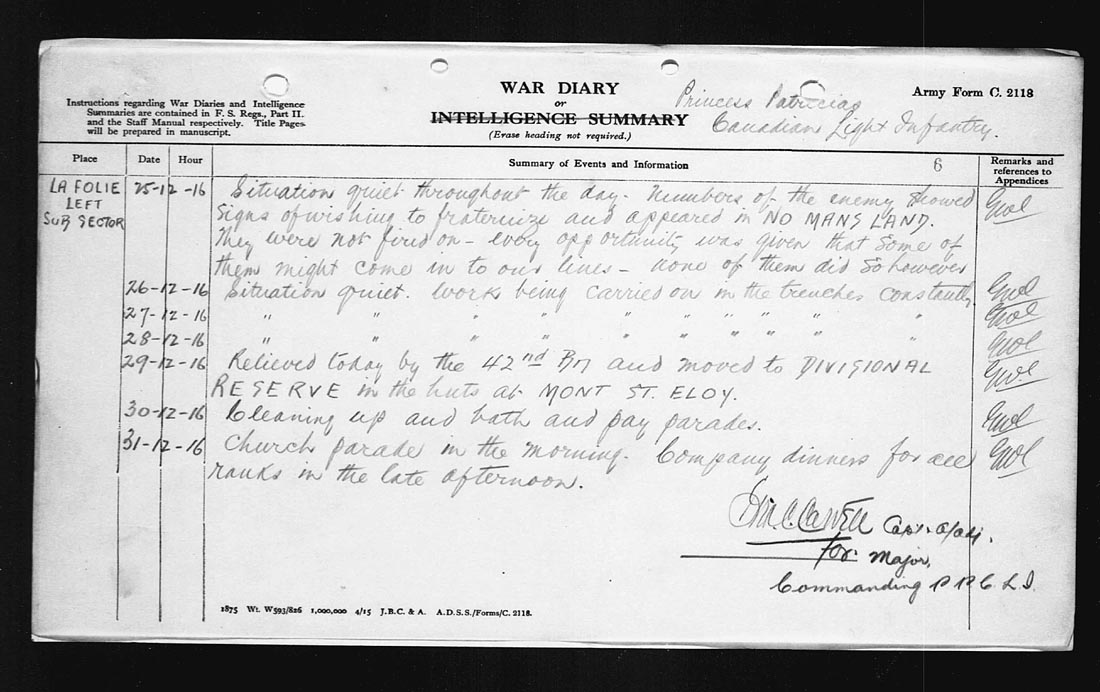 WAR DIARY
or
INTELLIGENCE SUMMARY
(Erase heading not required.)
Instructions regarding War Diaries and Intelligence
Summaries are contained in F. S. Regs., Part II.
and the Staff Manual respectively. Title Pages
will be prepared in manuscript.
Princess Patricias
Canadian Light Infantry.
Army Form C. 2118
Place Date Hour Summary of Events and Information 6 Remarks and
references to
Appendices
LA FOLIE
LEFT
SUB SECTOR
25-12-16 Situation quiet throughout the day. Numbers of the enemy showed
signs of wishing to fraternize and appeared in NO MANS LAND.
They were not fired on - every opportunity was given that some of
them might come in to our lines - none of them did so however
26-12-16 Situation quiet. Work being carried on in the trenches constantly
27-12-16 " " " " " " " " " "
28-12-16 " " " " " " " " " "
29-12-16 Relieved today by the 42nd Bn and moved to DIVISIONAL
RESERVE in the huts at MONT ST. ELOY.
30-12-16 Cleaning up and bath and pay parades.
31-12-16 Church parade in the morning. Company dinners for all
ranks in the late afternoon.
Capt. a/adj.
for Major,
Commanding P.P.C.L.I.
1875 Wt. W593/826 1,000,000 4/15 J.B.C. & A. A.D.S.S./Forms/C. 2118.